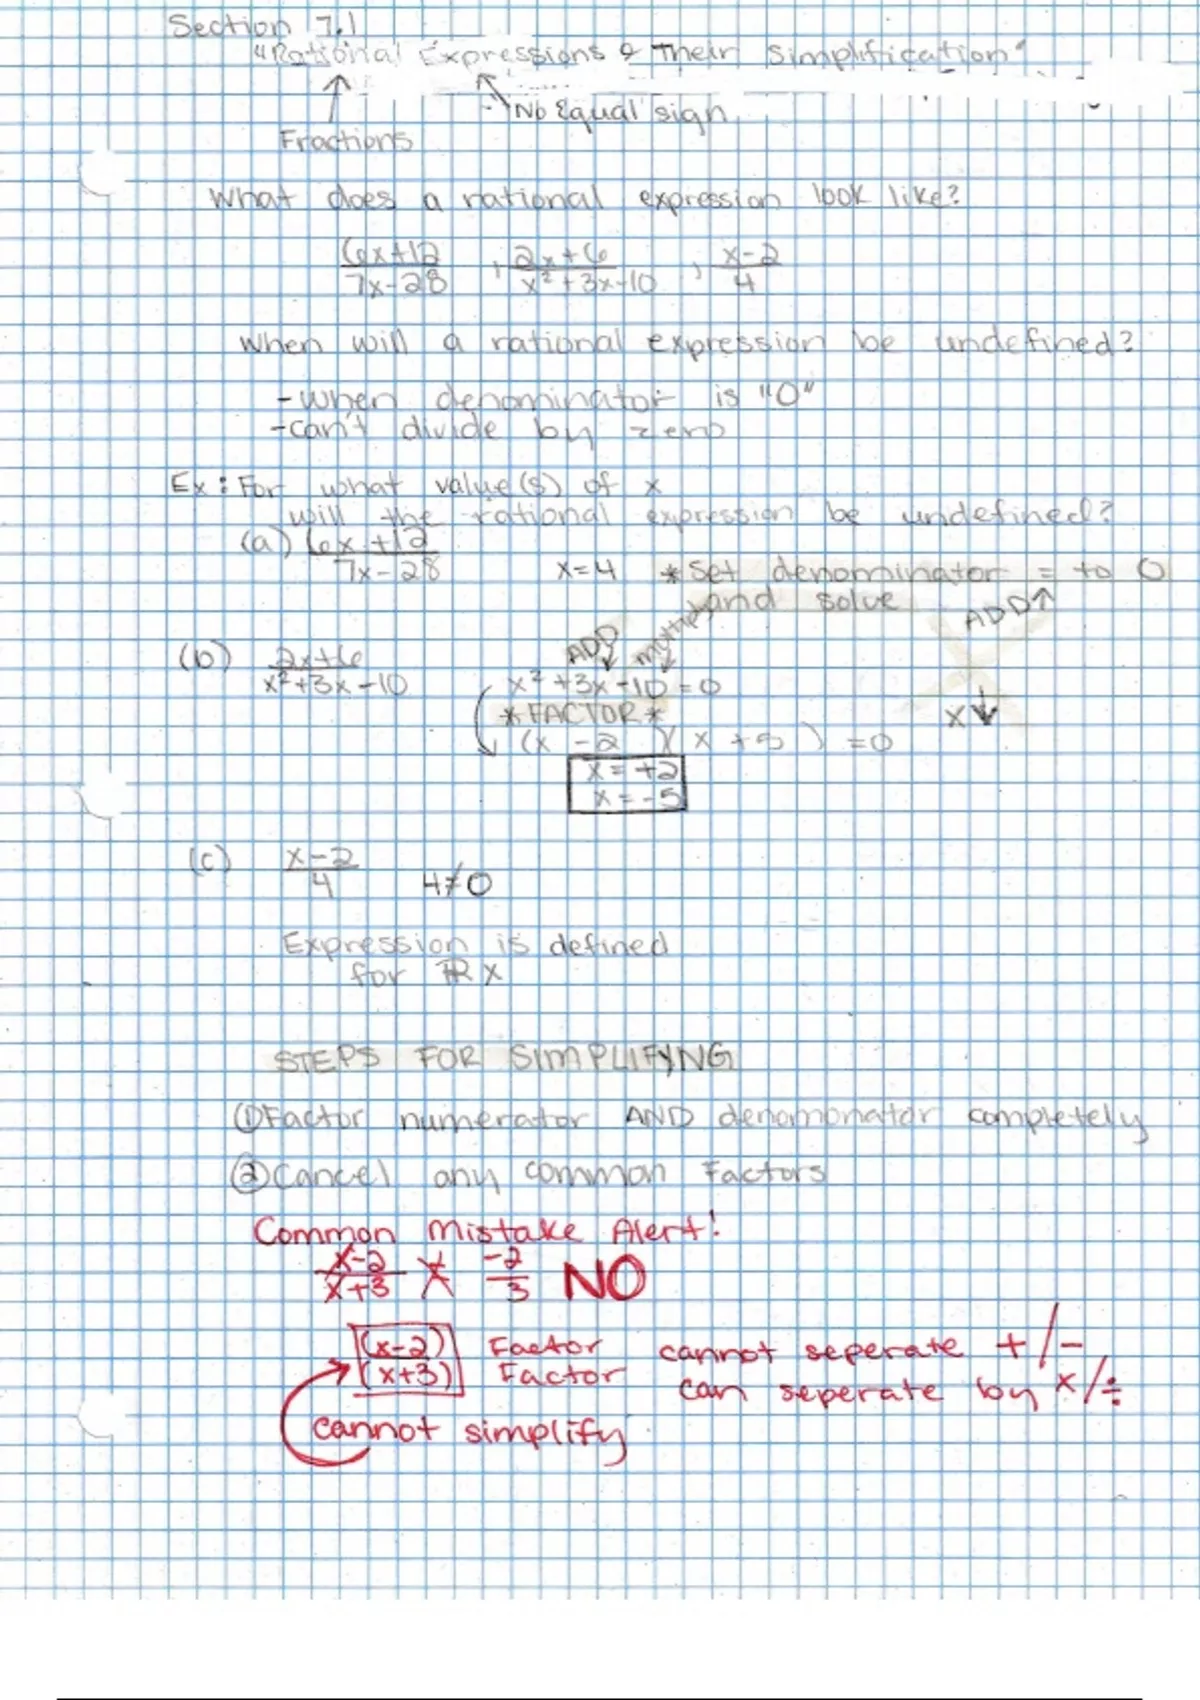 Section 7.1
"Rational Expressions & Their Simplification"
No Equal sign
Fractions
What does a rational expression look like?
6x+12 / 7x-28 , 2x+6 / x²+3x-10 , x-2 / 4
When will a rational expression be undefined?
- when denominator is "0"
- can't divide by zero
Ex: For what value(s) of x
will the rational expression be undefined?
(a) 6x+12 / 7x-28 x=4 *Set denominator = to 0
and solve
ADD↑
ADD↓ multiply↓
(b) 2x+6 / x²+3x-10 x²+3x-10=0
*FACTOR* x↓
(x -2 )( x +5 ) =0
x = +2
x = -5
(c) x-2 / 4 4≠0
Expression is defined
for ℝ x
STEPS FOR SIMPLIFYNG
①Factor numerator AND denomonator completely
②Cancel any common Factors
Common Mistake Alert!
x-2 / x+3 ≠ -2 / 3 NO
(x-2) Factor cannot seperate +/-
(x+3) Factor can seperate by x/÷
cannot simplify